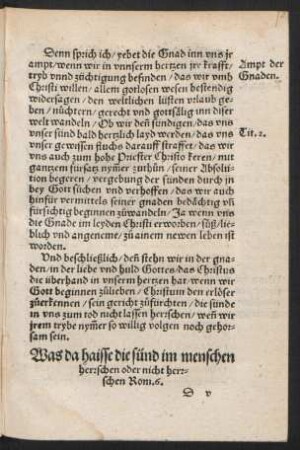 Denn sprich ich/ yebet die Gnad inn vns jr
ampt/ wenn wir in vnnserm hertzen jre krafft/
tryb vnnd züchtigung befinden/ das wir vmb
Christi willen/ allem gotlosen wesen bestendig
widersagen/ den weltlichen lüsten vrlaub ge-
ben/ nüchtern/ gerecht vnd gottsälig inn diser
welt wandeln/ Ob wir deñ sündigen/ das vns
vnser sünd bald hertzlich layd werden/ das vns
vnser gewissen fluchs darauff straffet/ das wir
vns auch zum hohe Priester Christo keren/ mit
gantzem fürsatz nym̃er zuthůn/ seiner Absolu-
tion begeren/ vergebung der sünden durch in
bey Got süchen vnd verhoffen/ das wir auch
hinfür vermittels seiner gnaden bedächtig vñ
fürsichtig beginnen zůwandeln/ Ja wenn vns
die Gnade im leyden Christi erworben/ süß/ lie-
blich vnd angeneme/ zů ainem newen leben ist
worden.
Vnd beschließlich/ deñ stehn wir in der gna-
den/ in der liebe vnd huld Gottes/ das Christus
die überhand in vnserm hertzen hat/ wenn wir
Gott beginnen zůlieben/ Christum den erlöser
zůerkennen/ sein gericht zůfürchten/ die sünde
in vns zum tod nicht lassen herrschen/ weñ wir
jrem trybe nym̃er so willig volgen noch gehor-
sam sein.
Was da haisse die sünd im menschen
herrschen oder nicht herr-
schen Rom. 6.
D v
Ampt der
Gnaden.
Tit. 2.